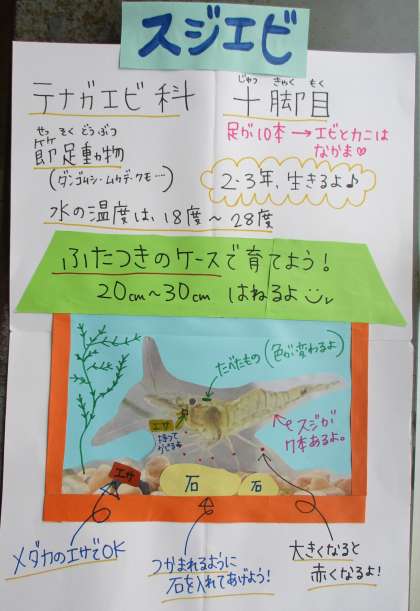 スジエビ
テナガエビ科
じゅっ きゃく もく
十脚目
足が10本→エビとカニは
なかま♡
せっ そく どうぶつ
節足動物
(ダンゴムシ・ムカデ・クモ…)
2・3年、生きるよ♪
水の温度は、18度~28度
ふたつきのケースで育てよう!
20cm~30cm はねるよ
たべたもの(色が変わるよ)
エサ
スジが
7本あるよ。
エサ
石
石
メダカのエサでOK
つかまれるように
石を入れてあげよう!
大きくなると
赤くなるよ!